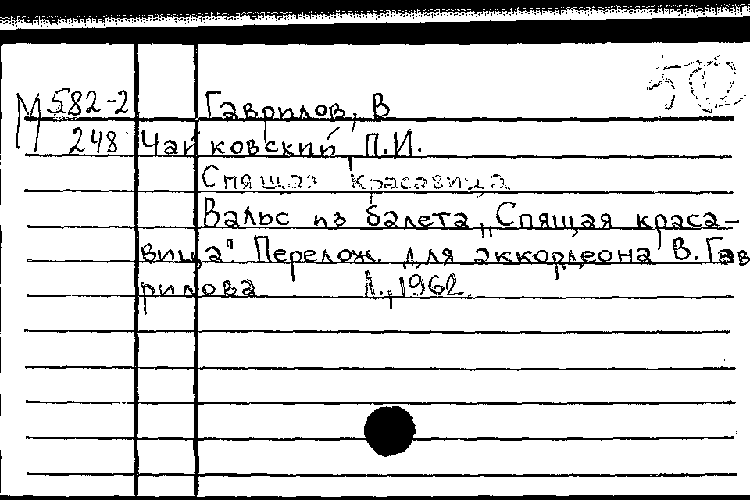 50
М 582-2 Гаврилов, В
248 Чайковский, П.И.
Спящая красавица
Вальс из балета „Спящая краса-
вица" Перелож. для аккордеона В. Гав
рилова Л., 1962.